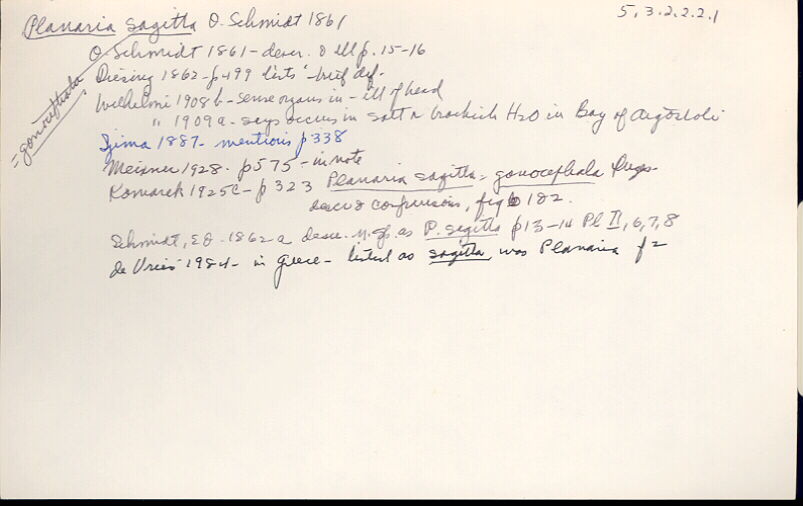 Planaria sagitta O. Schmidt 1861
5,3.2.2.2.1
= gonocephala
O. Schmidt 1861 - descr. & ill p. 15-16
Diesing 1862 - p 499 lists - brief def.
Wilhelmi 1908 b - sense organs in - ill of head
" 1909 a - says occurs in salt or brackish H2O in Bay of Argostoli
Ijima 1887 - mentions p 338
Meisner 1928 - p 575 - in note
Komarek 1925c - p 323 Planaria sagitta = gonocephala Duges
descr & comparison, fig 182.
Schmidt, E O. 1862 a descr. n. sp. as P. sagitta p 13-14 Pl II, 6, 7, 8
de Vries 1984 - in Greece - listed as sagitta, was Planaria